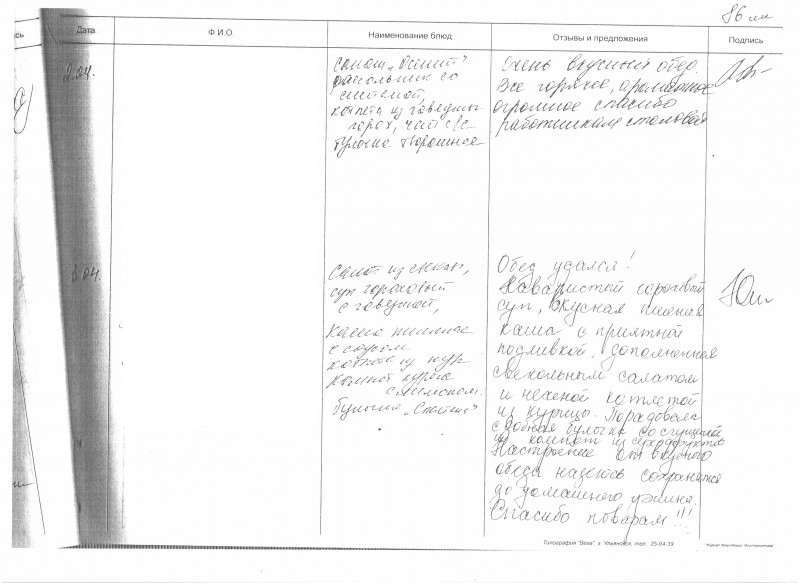 86
сь
Дата
Ф.И.О.
Наименование блюд
Отзывы и предложения
Подпись
2.04.
Салат „Осенний"
рассольник со
сметаной,
котлета из говядины
горох, чай с/с
булочка творожная
Очень вкусный обед.
Все горячее, ароматное
огромное спасибо
работникам столовой
3.04.
Салат из свеклы,
суп гороховый
с говядиной,
каша пшенная
с соусом
котлета из кур
компот курага
с лимоном.
Булочка
Обед удался!
Наваристый гороховый
суп, вкусная пшенная
каша с приятной
подливкой, дополненная
свекольным салатом
и нежной котлетой
из курицы. Порадовала
сдобная булочка со сгущенкой
компот из сухофруктов
Настроение от вкусного
обеда надеюсь сохранится
до домашнего ужина.
Спасибо поварам!!!
Типография "Вега", г. Ульяновск, тел. 25-04-39